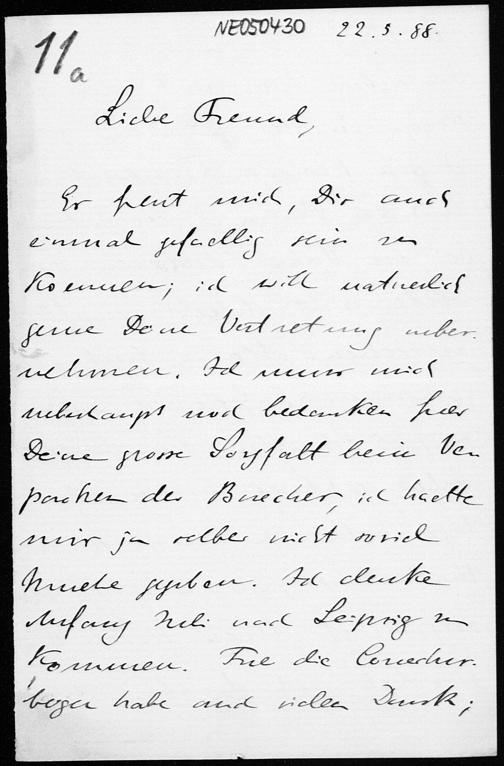 NE050430 22.5.88.
11a
Liebe Freund,
Es freut mich, Dir auch
einmal gefaellig sein zu
Koennen; ich will natuerlich
gerne Deine Vertretung ueber-
nehmen. Ich muss mich
ueberhaupt noch bedanken fuer
Deine grosse Sorgfalt beim Ver
packen der Buecher, ich haette
mir ja selber nicht soviel
Muehe gegeben. Ich denke
Anfang Juli nach Leipzig zu
Kommen. Fue die Correctur-
bogen habe auch vielen Dank;